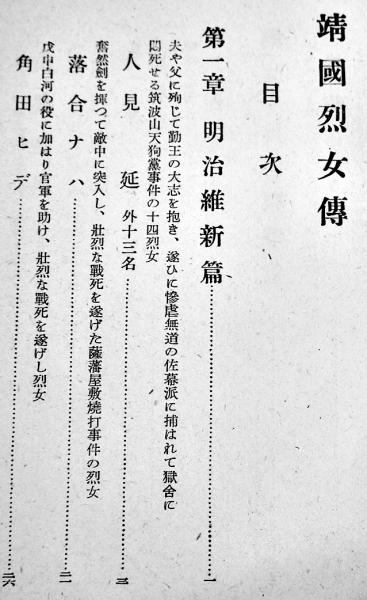 靖國烈女傳
目次
第一章 明治維新篇……一
夫や父に殉じて勤王の大志を抱き、遂ひに慘虐無道の佐幕派に捕はれて獄舍に
悶死せる筑波山天狗黨事件の十四烈女
人見延 外十三名……三
奮然劍を揮つて敵中に突入し、壯烈な戰死を遂げた薩藩屋敷燒打事件の烈女
落合ナハ……二一
戊申白河の役に加はり官軍を助け、壯烈な戰死を遂げし烈女
角田ヒデ……二六